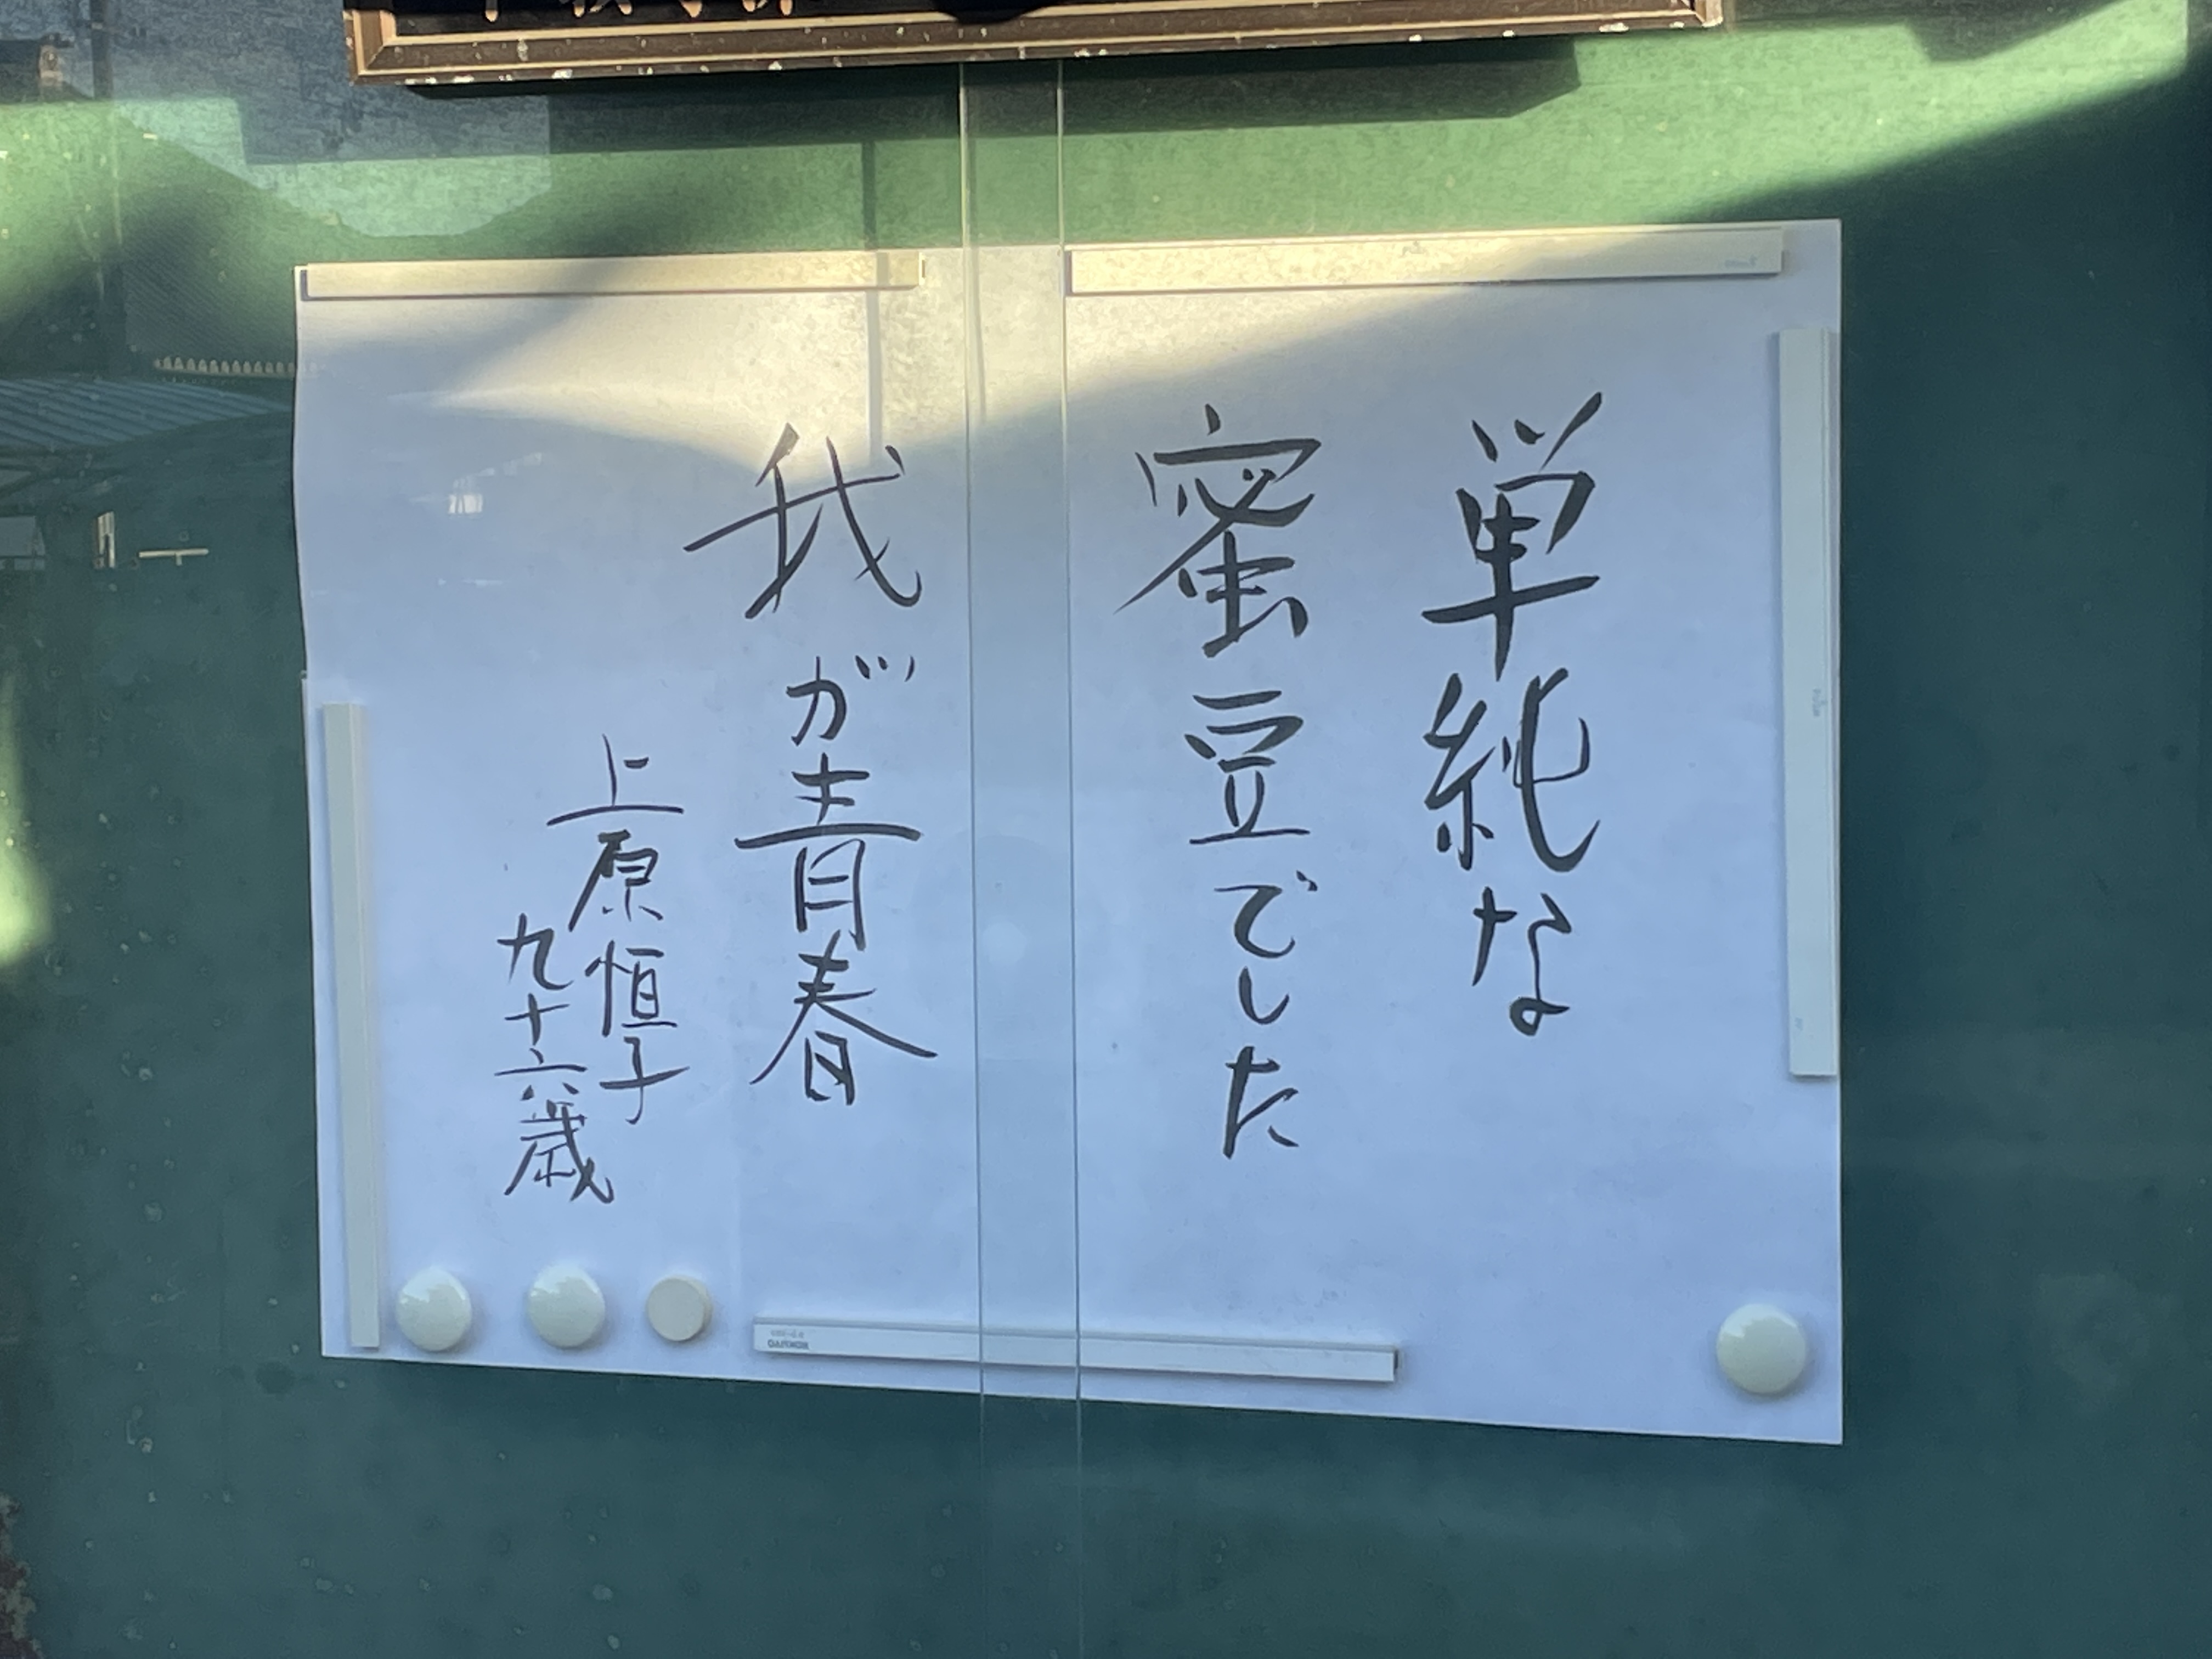 単純な
蜜豆でした
我が青春
上原恒子
九十六歳